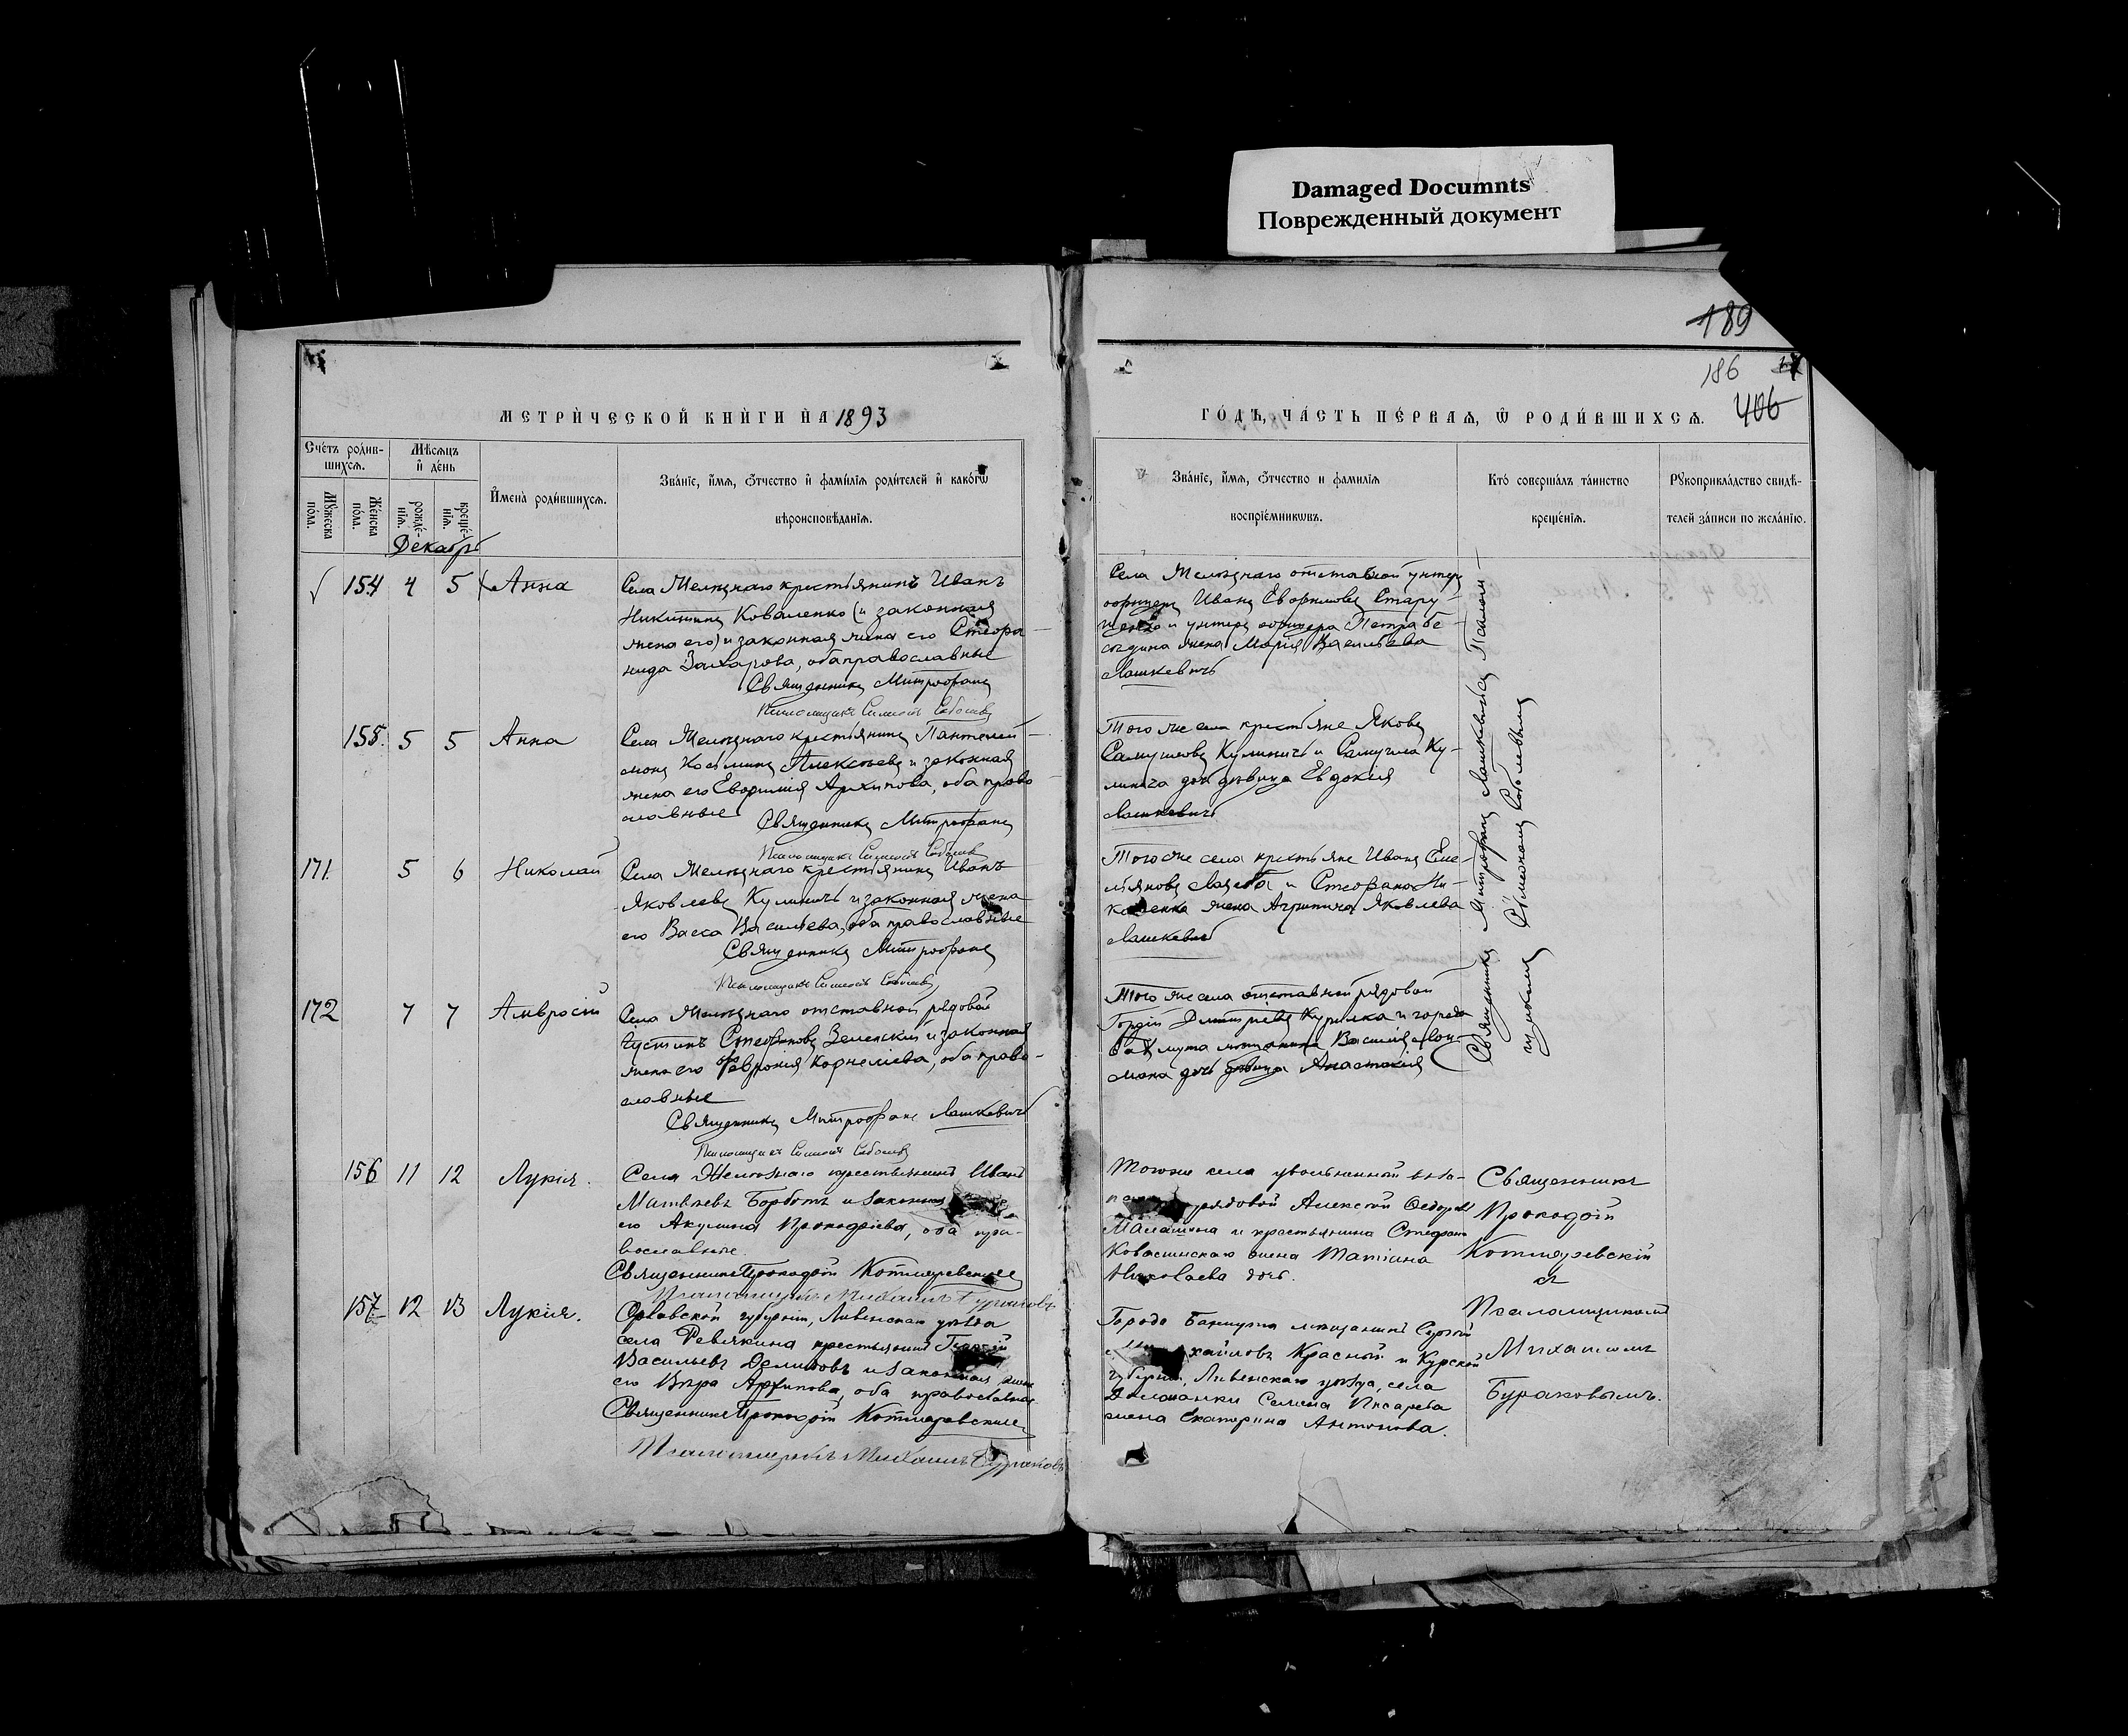 Damaged Documnts
Поврежденный документ
189
186
406
МЕТРИЧЕСКОЙ КНИГИ НА 1893
ГОДЪ, ЧАСТЬ ПЕРВАЯ, Ѡ РОДИВШИХСЯ.
Счетъ родив-
шихся.
Мѣсяцъ
и день
Мужеска
пола.
Женска
пола.
рожде-
нія.
креще-
нія.
Имена родившихся.
Званіе, имя, отчество и фамилія родителей и какогѡ
вѣроисповѣданія.
Званіе, имя, отчество и фамилія
воспріемникѡвъ.
Кто совершалъ таинство
крещенія.
Рукоприкладство свидѣ-
телей записи по желанію.
Декабрь
154 4 5 Анна
Села Желѣзнаго крестьянинъ Иванъ
Никитинъ Коваленко (и законная
жена его) и законная жена его Стефа-
нида Захарова, оба православные
Священникъ Митрофанъ
Псаломщикъ Симеонъ
Села Желѣзнаго отставной унтеръ
офицеръ Иванъ Евфимовъ
и унтеръ офицера Петра
жена Марія Васильева
Лашкевичъ
155. 5 5 Анна
Села Желѣзнаго крестьянинъ Пантелей-
монъ Косьминъ Алексѣевъ и законная
жена его Евфимія Архипова, оба право
славные
Священникъ Митрофанъ
Псаломщикъ Симеонъ
Того же села крестьяне Яковъ
Самуиловъ Куличъ и Самуила Ку-
лича дочь дѣвица Евдокія
Лашкевичъ
171. 5 6 Николай
Села Желѣзнаго крестьянинъ Иванъ
Яковлевъ Куличъ и законная жена
его Васса Васильева, оба православные
Священникъ Митрофанъ
Псаломщикъ Симеонъ
Того же села крестьяне Иванъ Еме-
льяновъ и Стефана
жена Агрипина Яковлева
Лашкевичъ
172 7 7 Амвросій
Села Желѣзнаго отставной рядовой
Іустинъ Стефановъ Зеленскій и законная
жена его Февронія Корнеліева, оба право-
славные
Священникъ Митрофанъ Лашкевичъ
Псаломщикъ Симеонъ
Того же села отставной рядовой
Гордій Димитріевъ Курилка и города
Бахмута мѣщанина Василія
дочь дѣвица Анастасія
Священникъ Митрофанъ Лашкевичъ съ Псалом-
щикомъ Симеономъ
156 11 12 Лукія.
Села Желѣзнаго крестьянинъ Иванъ
Матвѣевъ и законная
его Акулина Прокофіева, оба пра-
вославные.
Священникъ Прокофій Котляревскій
Псаломщикъ Михаилъ Бураковъ
Того же села уволенный въ за-
рядовой Алексѣй Федоровъ
и крестьянина Стефана
жена Татіана
Николаева дочь.
Священникъ
Прокофій
Котляревскій
съ
Псаломщикомъ
Михаиломъ
Бураковымъ.
157 12 13 Лукія.
Орловской губерніи, Ливенскаго уѣзда
села Ревякина крестьянинъ
Васильевъ Деминовъ и законная жена
его Вѣра Архипова, оба православные
Священникъ Прокофій Котляревскій
Псаломщикъ Михаилъ Бураковъ
Города Бахмута мѣщанинъ Сергѣй
Красный и Курской
губерніи, Ливенскаго уѣзда, села
Семена Писарева
жена Екатерина Антонова.